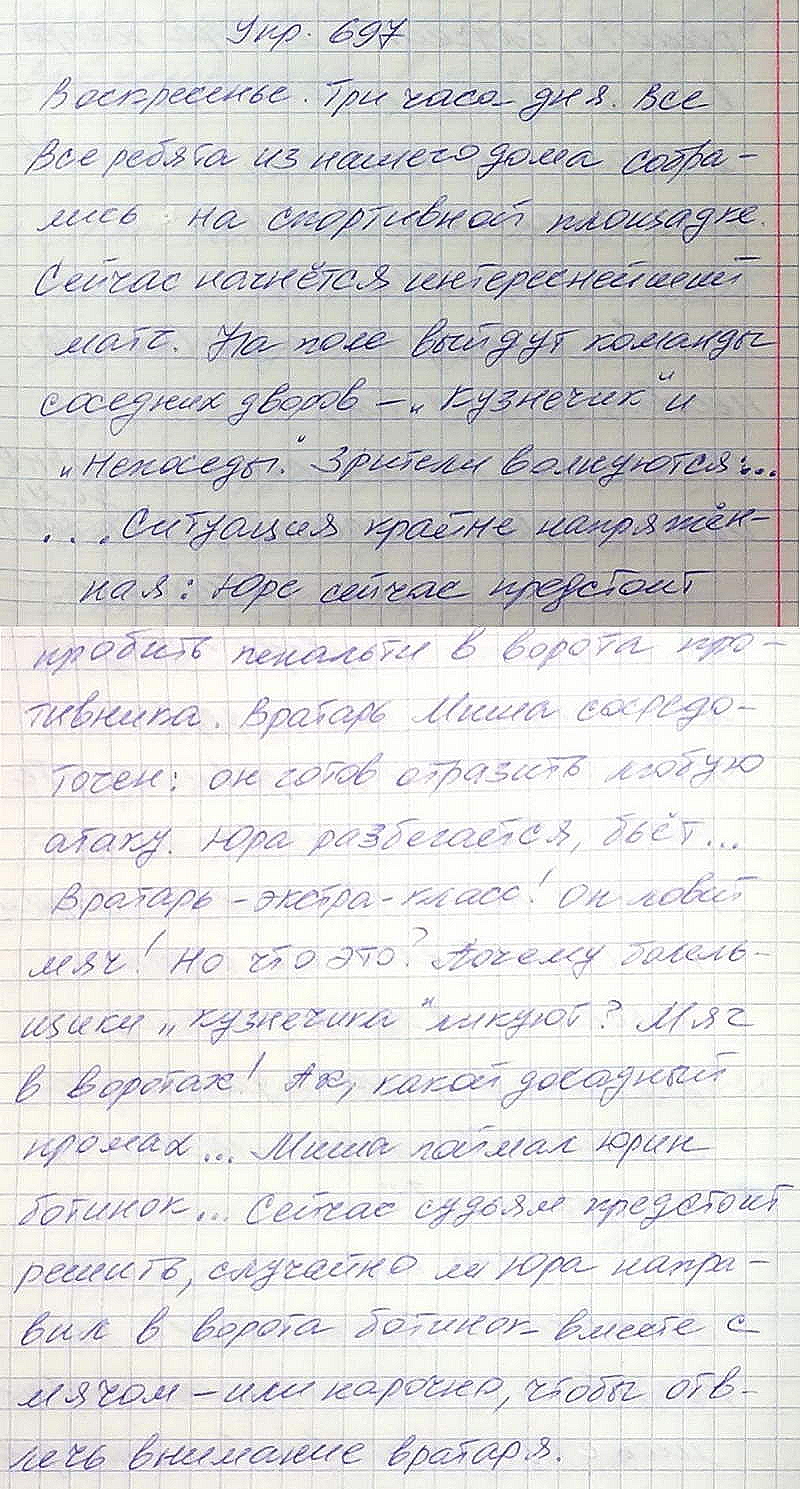 Упр. 697
Воскресенье. Три часа дня. Все
Все ребята из нашего дома собра-
лись на спортивной площадке.
Сейчас начнётся интереснейший
матч. На поле выйдут команды
соседних дворов – „Кузнечик" и
„Непоседы". Зрители волнуются:...
...Ситуация крайне напряжён-
ная: Юре сейчас предстоит
пробить пенальти в ворота про-
тивника. Вратарь Миша сосредо-
точен: он готов отразить любую
атаку. Юра разбегается, бьёт...
Вратарь – экстра-класс! Он ловит
мяч! Но что это? Почему болель-
щики „Кузнечика" ликуют? Мяч
в воротах! Ах, какой досадный
промах... Миша поймал Юрин
ботинок... Сейчас судьям предстоит
решить, случайно ли Юра напра-
вил в ворота ботинок вместе с
мячом – или нарочно, чтобы отв-
лечь внимание вратаря.